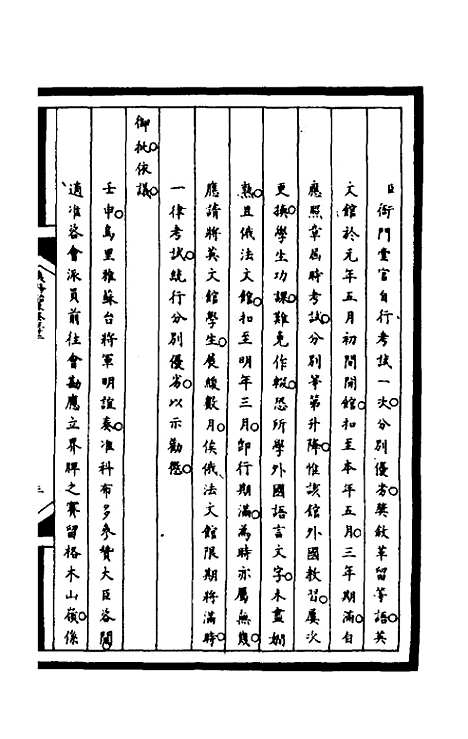 臣衙門堂官自行考試一次分別優劣奬敘革留等語英
文館於元年五月初間開館扣至本年五月三年期滿自
應照章屆時考試分別等第升降惟該館外國教習屢次
更換學生功課難免作輟恐所學外國語言文字未盡嫻
熟且俄法文館扣至明年三月卽行期滿為時亦屬無幾
應請將英文館學生展緩數月俟俄法文館限期將滿時
一律考試統行分別優劣以示勸懲
御批依議
壬申烏里雅蘇台將軍明誼奏准科布多參贊大臣咨開
適准咨會派員前往會勘應立界牌之賽留格木山嶺係